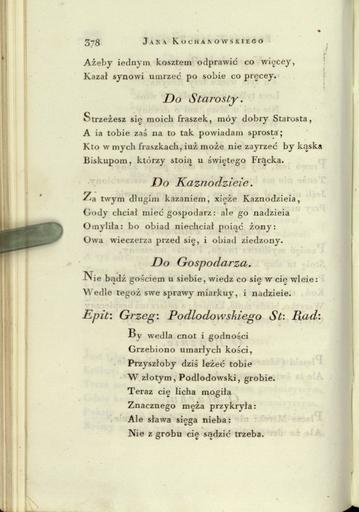 378 JANA KOCHANOWSKIEGO
Ażeby iednym kosztem odprawić co więcey,
Kazał synowi umrzeć po sobie co pręcey.
Do Starosty.
Strzeżesz się moich fraszek, móy dobry Starosta,
A ia tobie zaś na to tak powiadam sprosta;
Kto w mych fraszkach, iuż może nie zayrzeć by kąska
Biskupom, którzy stoią u świętego Frącka.
Do Kaznodzieie.
Za twym długim kazaniem, xięże Kaznodzieia,
Gody chciał mieć gospodarz: ale go nadzieia
Omyliła: bo obiad niechciał poiąć żony:
Owa wieczerza przed się, i obiad ziedzony.
Do Gospodarza.
Nie bądź gościem u siebie, wiedz co się w cię wleie:
Wedle tegoż swe sprawy miarkuy, i nadzieie.
Epit: Grzeg: Podlodowskiego St: Rad:
By wedla cnot i godności
Grzebiono umarłych kości,
Przyszłoby dziś leżeć tobie
W złotym, Podlodowski, grobie.
Teraz cię licha mogiła
Znacznego męża przykryła:
Ale sława sięga nieba:
Nie z grobu cię sądzić trzeba.